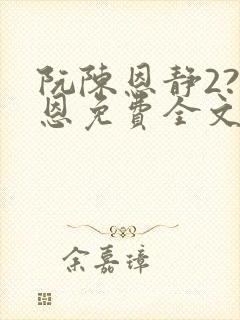 阮陈恩静2?
恩免费全文
余嘉璋